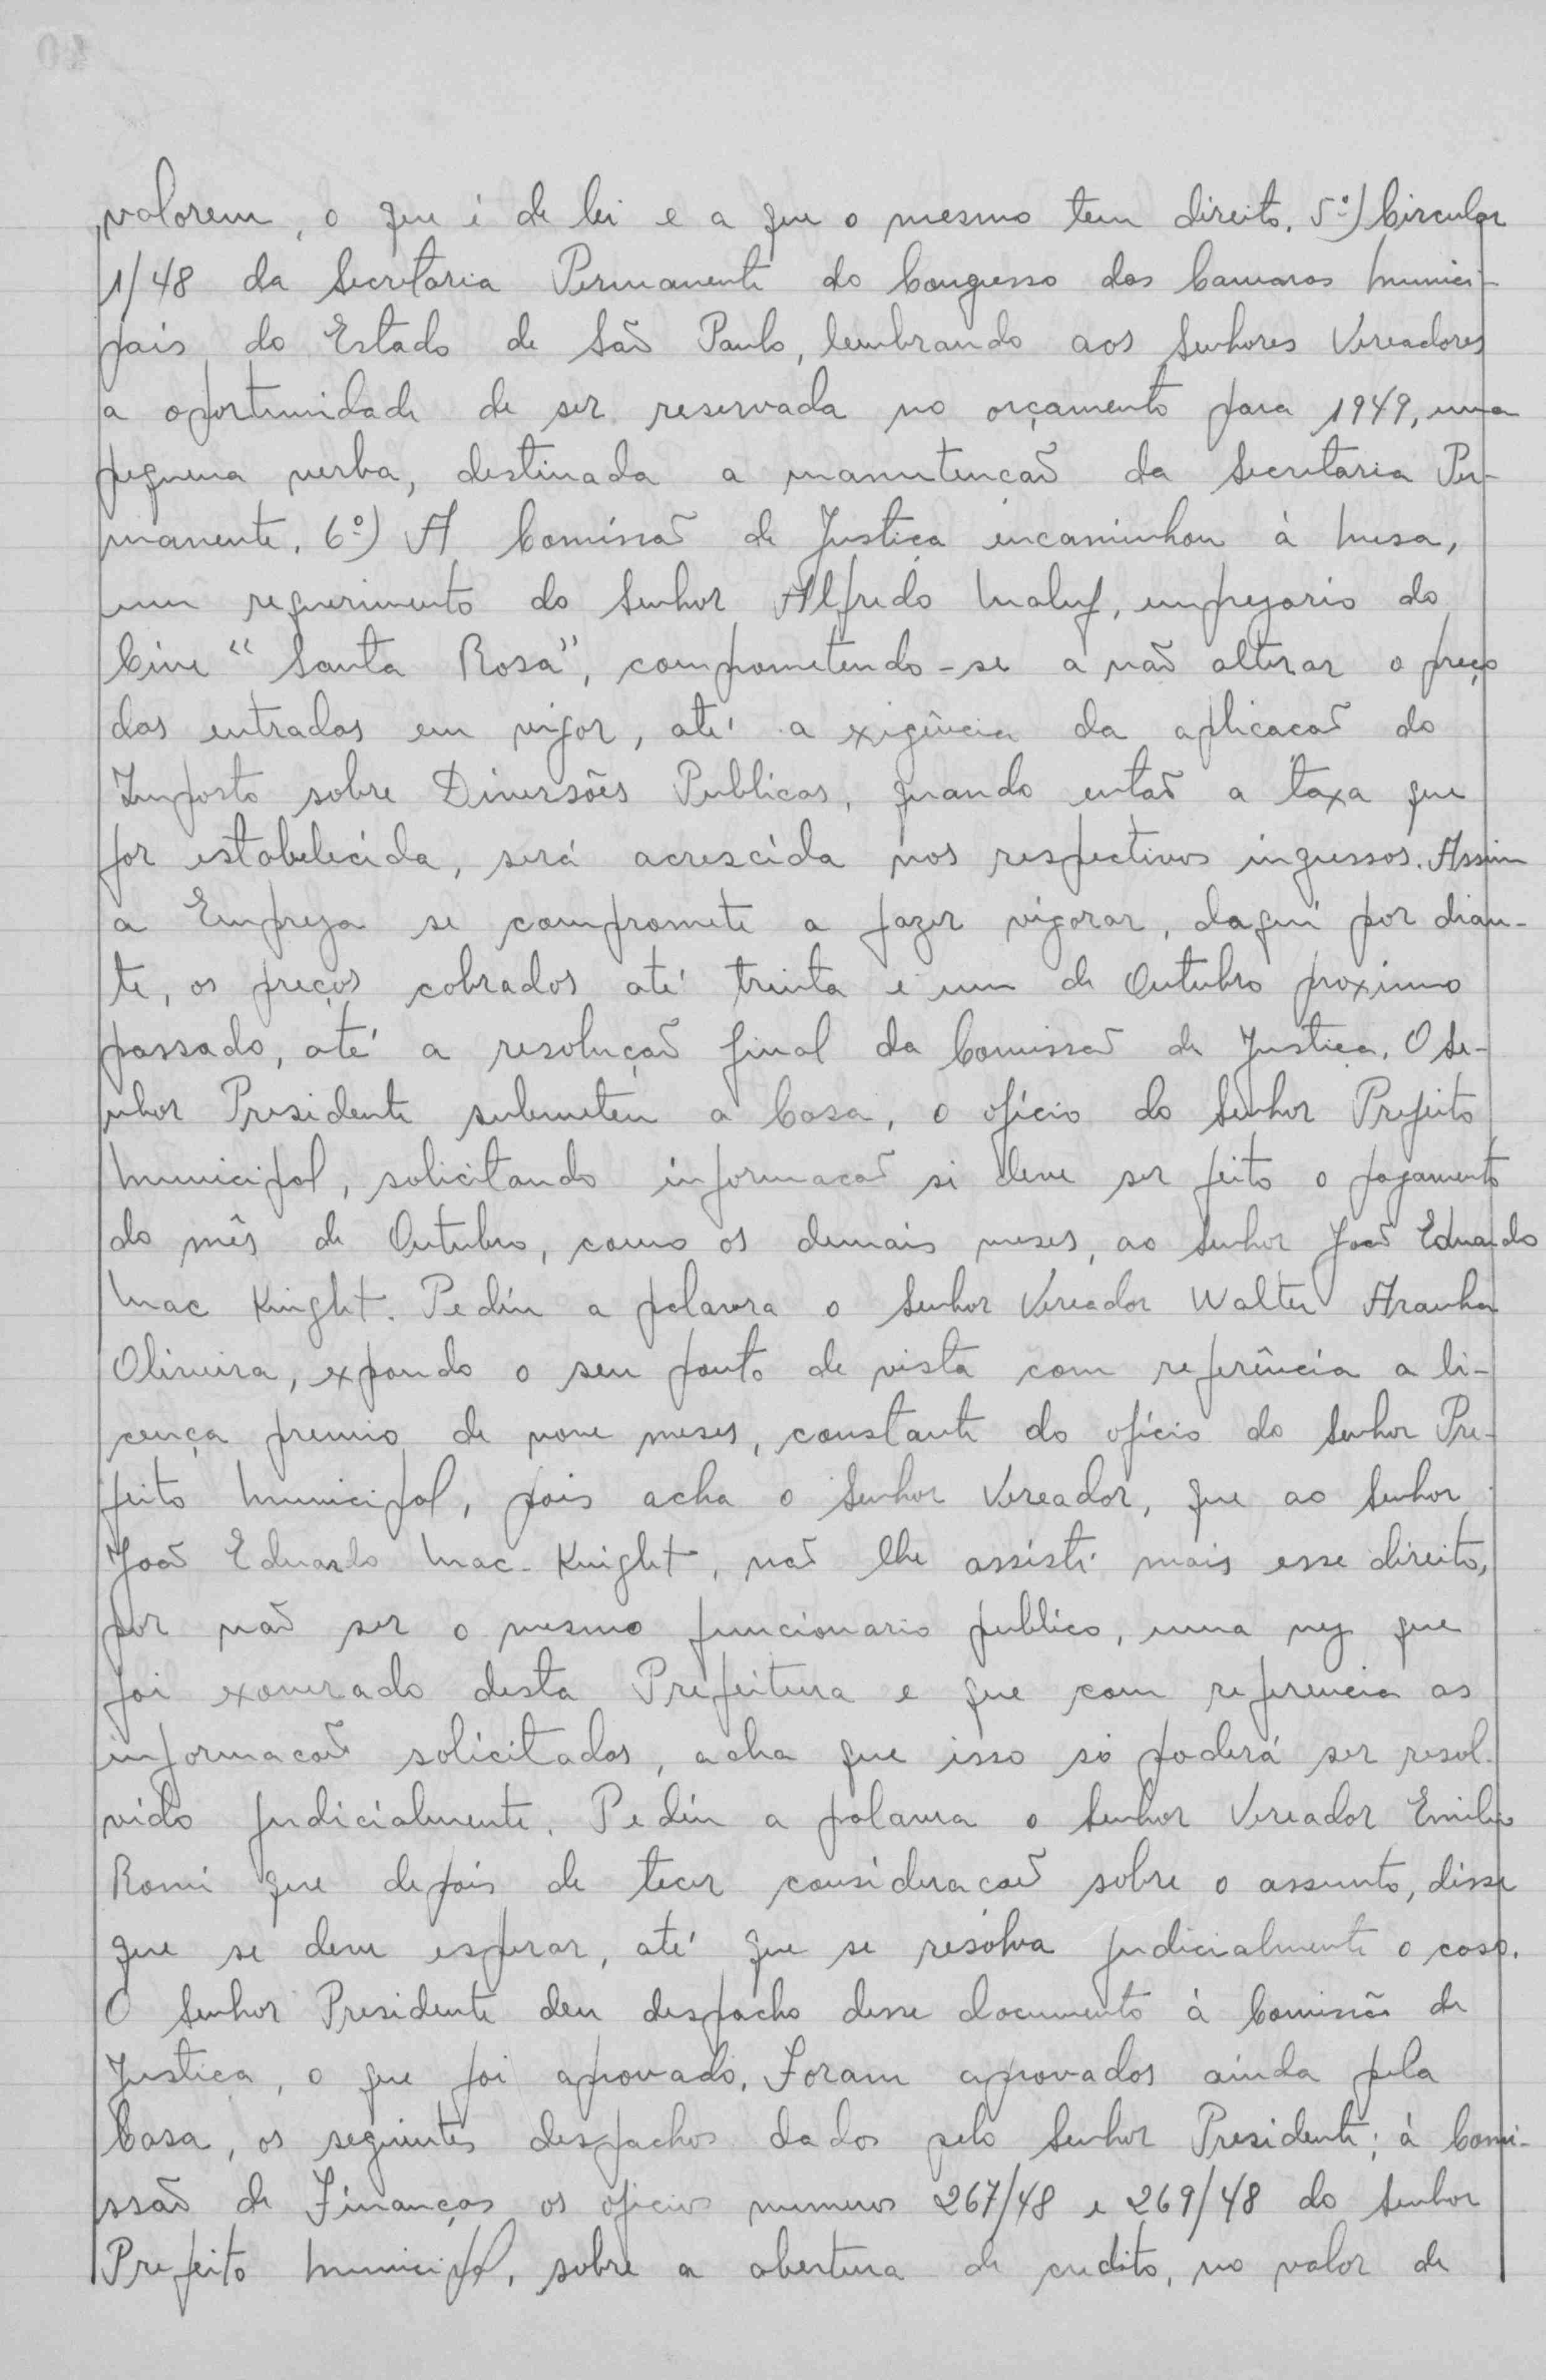 valorem, o que é de lei e a que o mesmo tem direito. 5º) Circular
1/48 da Secretaria Permanente do Congresso das Camaras Munici-
pais do Estado de São Paulo, lembrando aos Senhores Vereadores
a oportunidade de ser reservada no orçamento para 1949, uma
pequena verba, destinada a manutencão da Secretaria Per-
manente. 6º) A Comissão de Justiça encaminhou à Mesa,
um requerimento do Senhor Alfredo Maluf, emprezario do
Cine "Santa Rosa", comprometendo-se a não alterar o preço
das entradas em vigor, até a exigência da aplicacão do
Imposto sobre Diversões Publicas, quando então a taxa que
for estabelecida, será acrescida nos respectivos ingressos. Assim
a Empreza se compromete a fazer vigorar, daqui por dian-
te, os preços cobrados até trinta e um de Outubro proximo
passado, até a resolução final da Comissão de Justiça. O Se-
nhor Presidente submeteu a Casa, o ofício do Senhor Prefeito
Municipal, solicitando informacão si deve ser feito o pagamento
do mês de Outubro, como os demais meses, ao Senhor João Eduardo
Mac Knight. Pediu a palavra o Senhor Vereador Walter Aranha
Oliveira, expondo o seu ponto de vista com referência a li-
cença premio de nove meses, constante do ofício do Senhor Pre-
feito Municipal, pois acha o Senhor Vereador, que ao Senhor
João Eduardo Mac-Knight, não lhe assiste mais esse direito,
por não ser o mesmo funcionario publico, uma vez que
foi exonerado desta Prefeitura e que com referencia as
informacoẽs solicitadas, acha que isso só poderá ser resol-
vido judicialmente. Pediu a palavra o Senhor Vereador Emilio
Romi que depois de tecer consideracoẽs sobre o assunto, disse
que se deve esperar, até que se resolva judicialmente o caso.
O Senhor Presidente deu despacho desse documento à Comissão de
Justiça, o que foi aprovado. Foram aprovados ainda pela
Casa, os seguintes despachos dados pelo Senhor Presidente; à Comi-
ssão de Finanças os oficios numeros 267/48 e 269/48 do Senhor
Prefeito Municipal, sobre a abertura de credito, no valor de